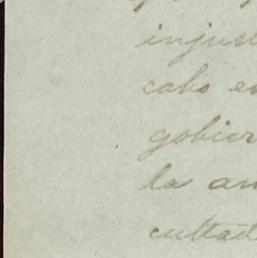 injus
cabo e
gobier
la am
cultad